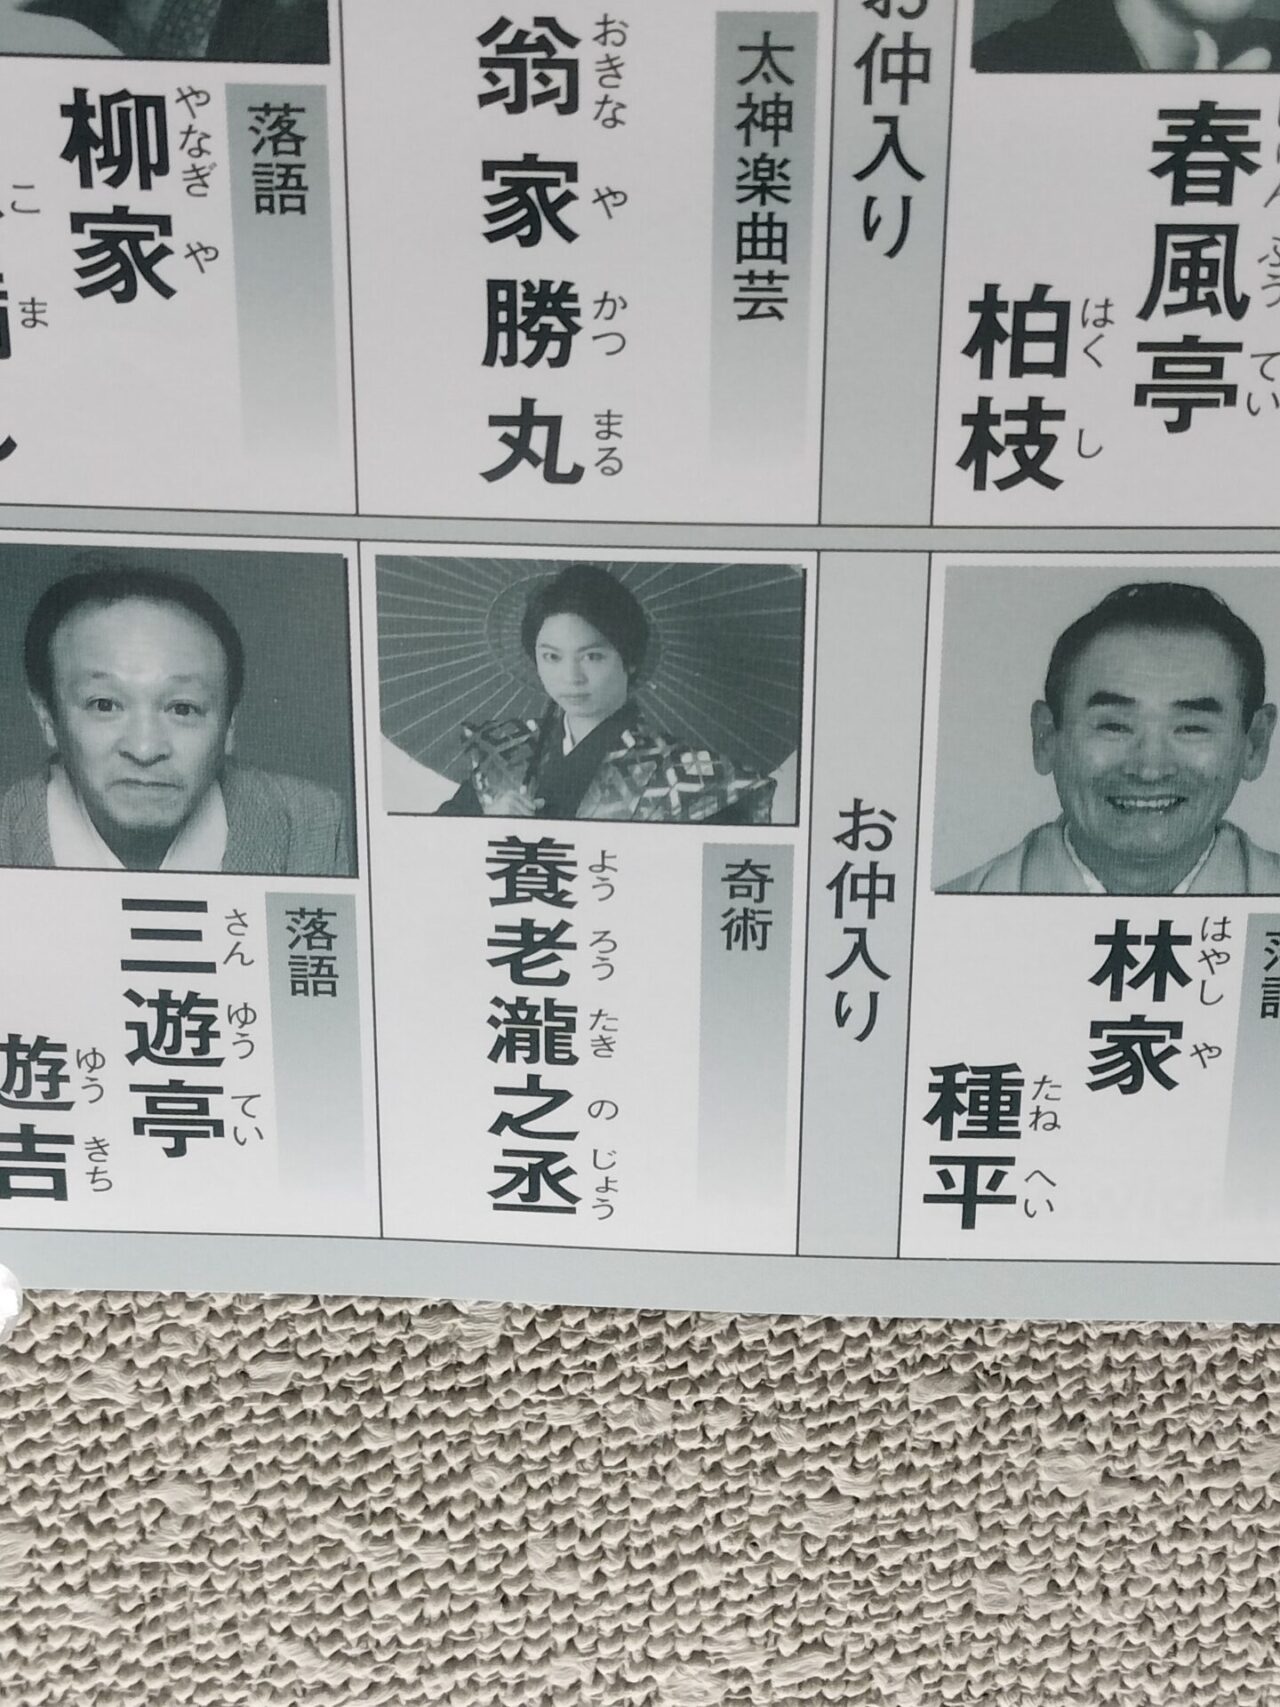 春風亭
ふうてい
柏枝
はくし
お仲入り
太神楽曲芸
おきなやかつまる
翁家勝丸
落語
やなぎや
柳家
こま
はやしや
林家
たねへい
種平
お仲入り
奇術
ようろうたきのじょう
養老瀧之丞
落語
さんゆうてい
三遊亭
ゆうきち
遊吉